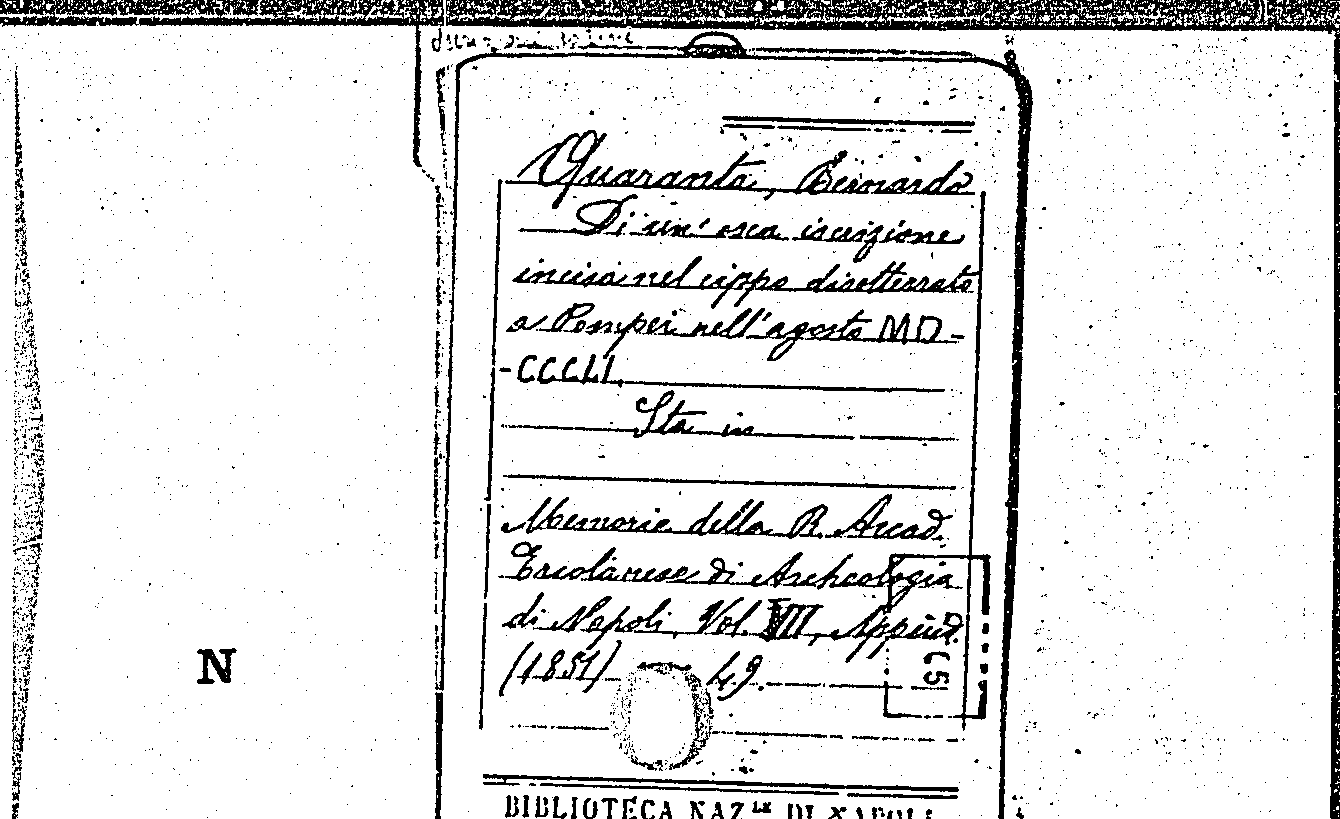 Quaranta, Bernardo
Di un' osca iscrizione
incisa nel cippo disotterrato
a Pompei nell'agosto MD-
-CCCLI.
Sta in
Memorie della R. Accad.
Ercolanese di Archeologia
di Napoli, Vol. VII, Append.
(1851) 49.
N
BIBLIOTECA NAZLE DI NAPOLI